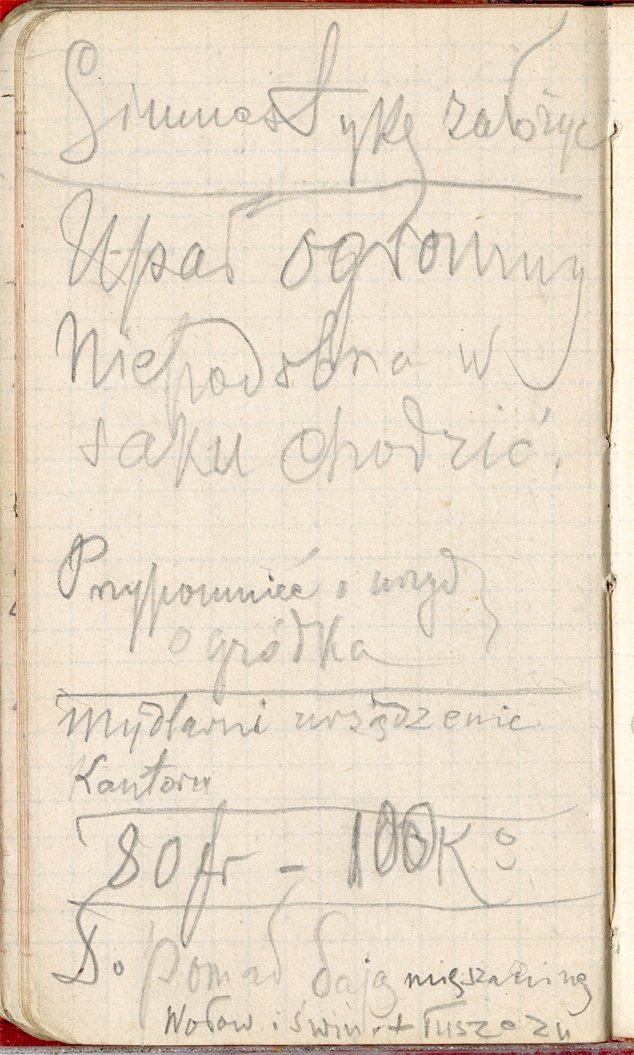 Gimnastykę założyć
Upał ogromny
Niepodobna w
saku chodzić.
Przypomnieć o urząd
ogródka
Mydlarni urządzenie
Kantoru
80 fr – 100 Ko
Do pomad dają mięszaninę
Wołow. i świn. tłuszczu